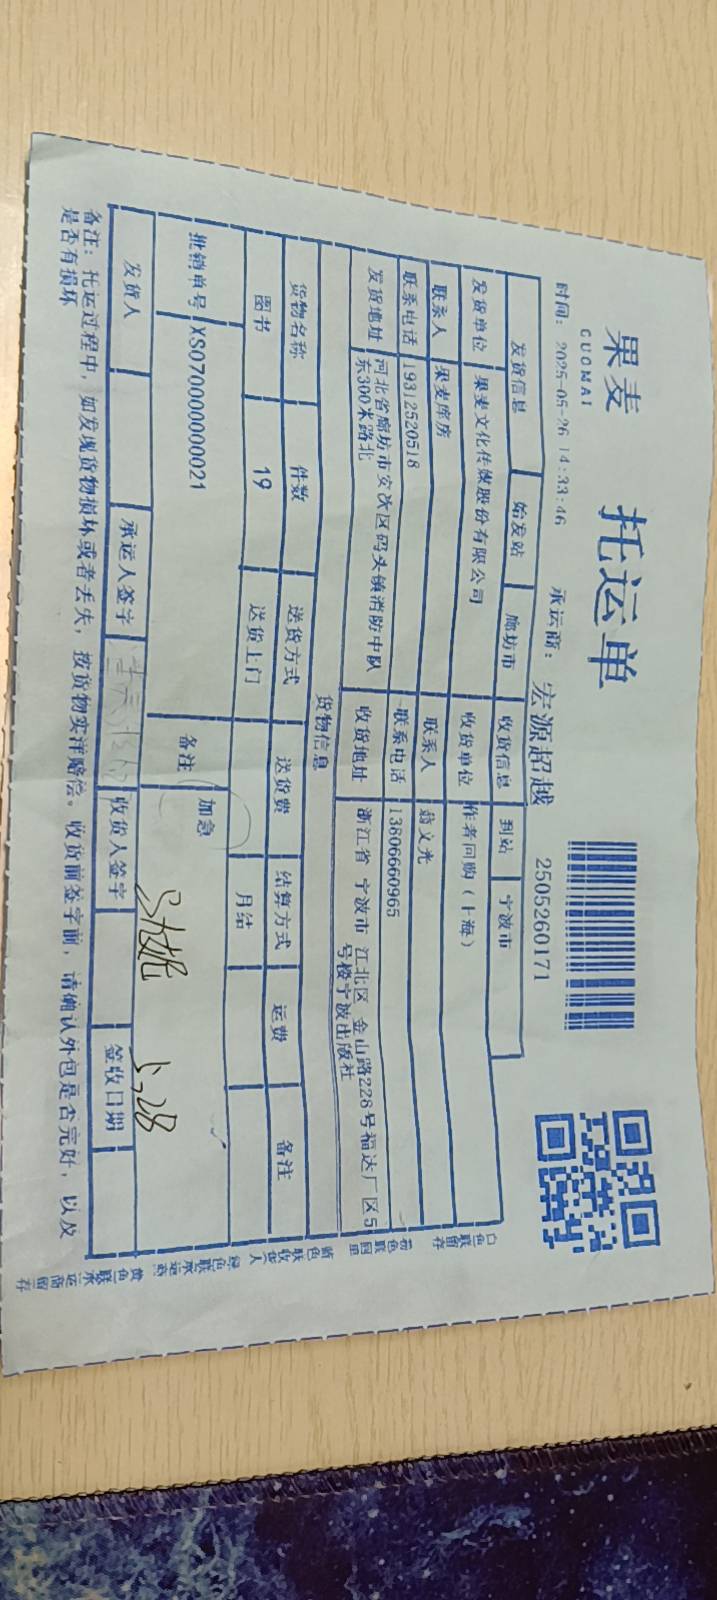 果麦
GUOMAI
托运单
时间: 2025-05-26 14:33:46
承运商: 宏源超越
2505260171
发货信息 始发站 廊坊市 收货信息 到站 宁波市
发货单位 果麦文化传媒股份有限公司 收货单位 作者回购(上海)
联系人 果麦库房 联系人 翁文光
联系电话 19312520518 联系电话 13806660965
发货地址 河北省廊坊市安次区码头镇消防中队
东300米路北
收货地址 浙江省 宁波市 江北区 金山路228号福达厂区5
号楼宁波出版社
货物信息
货物名称 件数 送货方式 送货费 结算方式 运费 备注
图书 19 送货上门 月结
批销单号 XS070000000021 备注 加急
发货人 承运人签字 收货人签字 签收日期
5.28
备注: 托运过程中, 如发现货物损坏或者丢失, 按货物实洋赔偿。收货前签字前, 请确认外包是否完好, 以及
是否有损坏
白色联留存
粉色联回单
蓝色联收货人
绿色联承运商
黄色联承运商留存